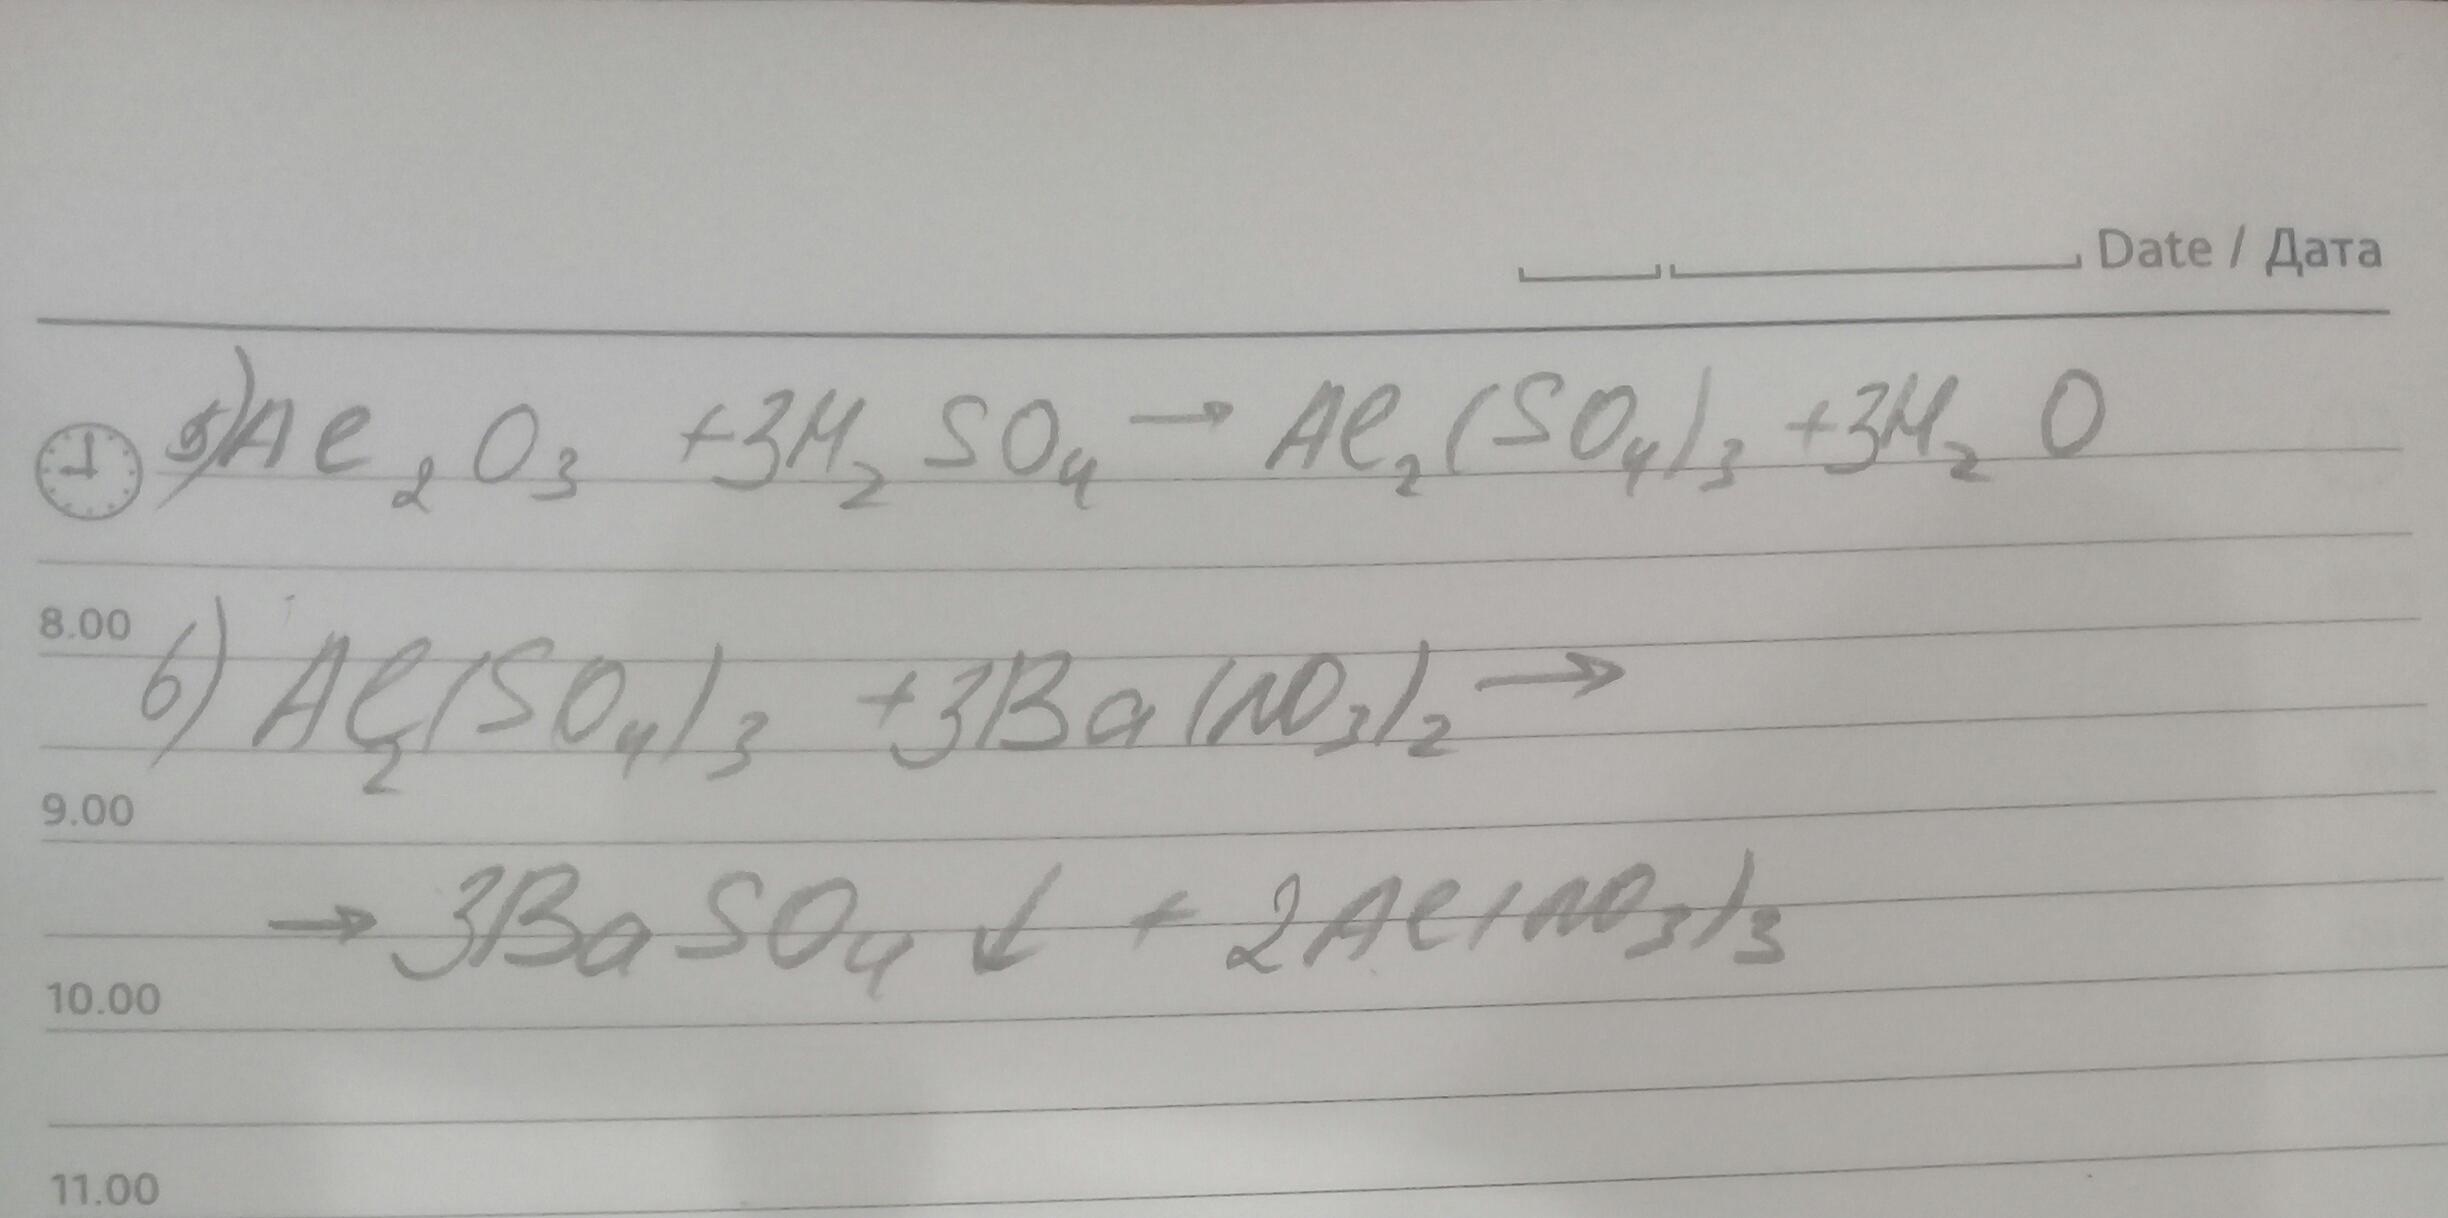 Date / Дата
5) Al₂O₃ +3H₂SO₄ → Al₂(SO₄)₃ +3H₂O
8.00
6) Al₂(SO₄)₃ +3Ba(NO₃)₂ →
9.00
→ 3BaSO₄↓ + 2Al(NO₃)₃
10.00
11.00